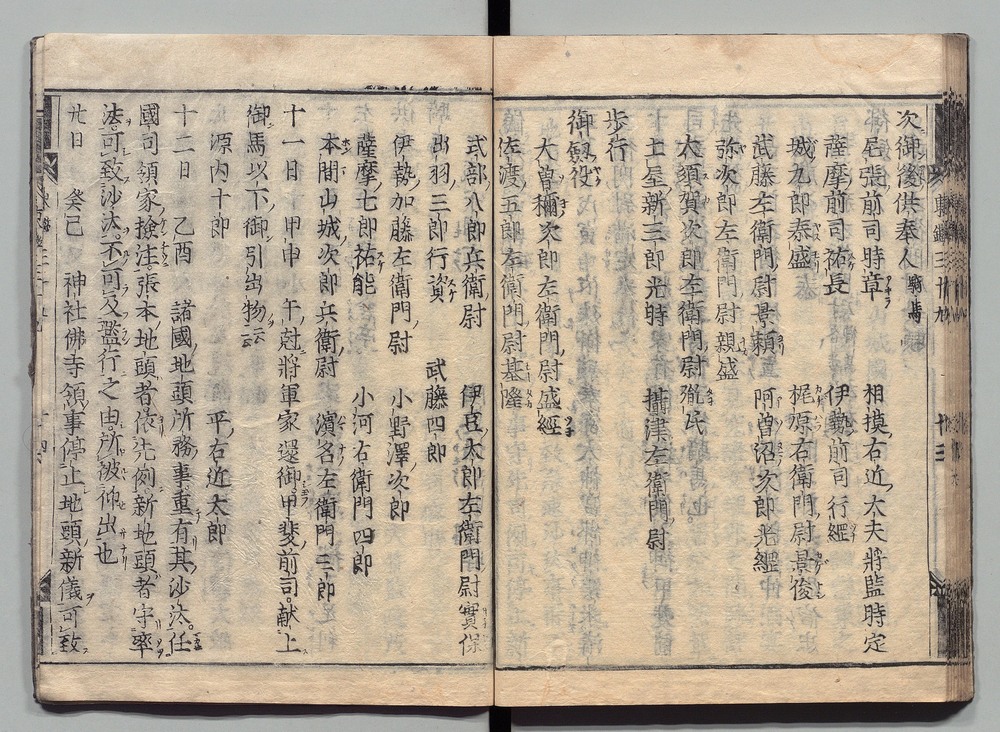 次御後供奉人 騎馬
尾張前司時章 相摸右近大夫將監時定
薩摩前司祐長 伊勢前司行經
城九郎泰盛 梶原右衛門尉景俊
武藤左衛門尉景頼 阿曽沼次郎光經
弥次郎左衛門尉親盛
大須賀次郎左衛門尉胤氏
土屋新三郎光時 攝津左衛門尉
歩行
御劔役
大曽禰次郎左衛門尉盛經
佐渡五郎左衛門尉基隆
式部八郎兵衛尉 伊臣太郎左衛門尉實保
出羽三郎行資 武藤四郎
伊勢加藤左衛門尉 小野澤次郎
薩摩七郎祐能 小河右衛門四郎
本間山城次郎兵衛尉 濱名左衛門三郎
十一日 甲申 午尅將軍家還御甲斐前司献上
御馬以下御引出物云云
源内十郎 平右近太郎
十二日 乙酉 諸國地頭所務事重有其沙汰任
國司領家撿注張本地頭者依先例新地頭者守率
法可致沙汰不可及濫行之由所被仰出也
廿日 癸巳 神社佛寺領事停止地頭新儀可致
東鑑三十九 十三